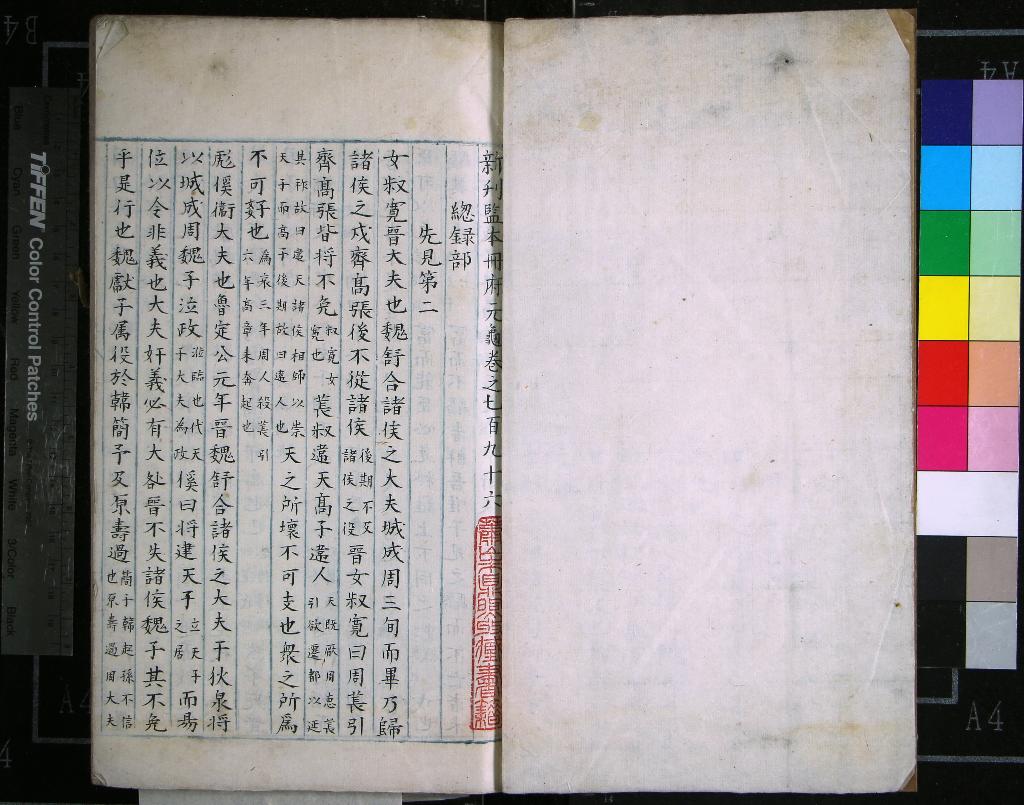 新刋監本冊府元龜卷之七百九十六
總錄部
先見第二
女叔寬晉大夫也魏舒合諸侯之大夫城成周三旬而畢乃歸
諸侯之戍齊髙張後不從諸侯後期不及諸侯之役晉女叔寬曰周萇引
齊髙張皆將不免叔寬女寬也萇叔違天髙子違人天旣厭周德萇引欲遷都以延
其祚故曰違天諸侯相師以崇天子而高子後期故曰違人也天之所壞不可支也衆之所爲
不可姦也爲哀三年周人殺萇引六年高章來奔起也
彪傒衞大夫也魯定公元年晉魏舒合諸侯之大夫于狄泉將
以城成周魏子涖政涖臨也代天子大夫為政傒曰將建天子立天子之居而易
位以令非義也大夫奸義必有大咎晉不失諸侯魏子其不免
乎是行也魏獻子属役於韓簡子及原壽過簡子韓起孫不信也原壽過周大夫
TIFFEN Color Control Patches
Blue
Cyan
Green
Yellow
Red
Magenta
White
3/Color
Black
A4
A4
B4